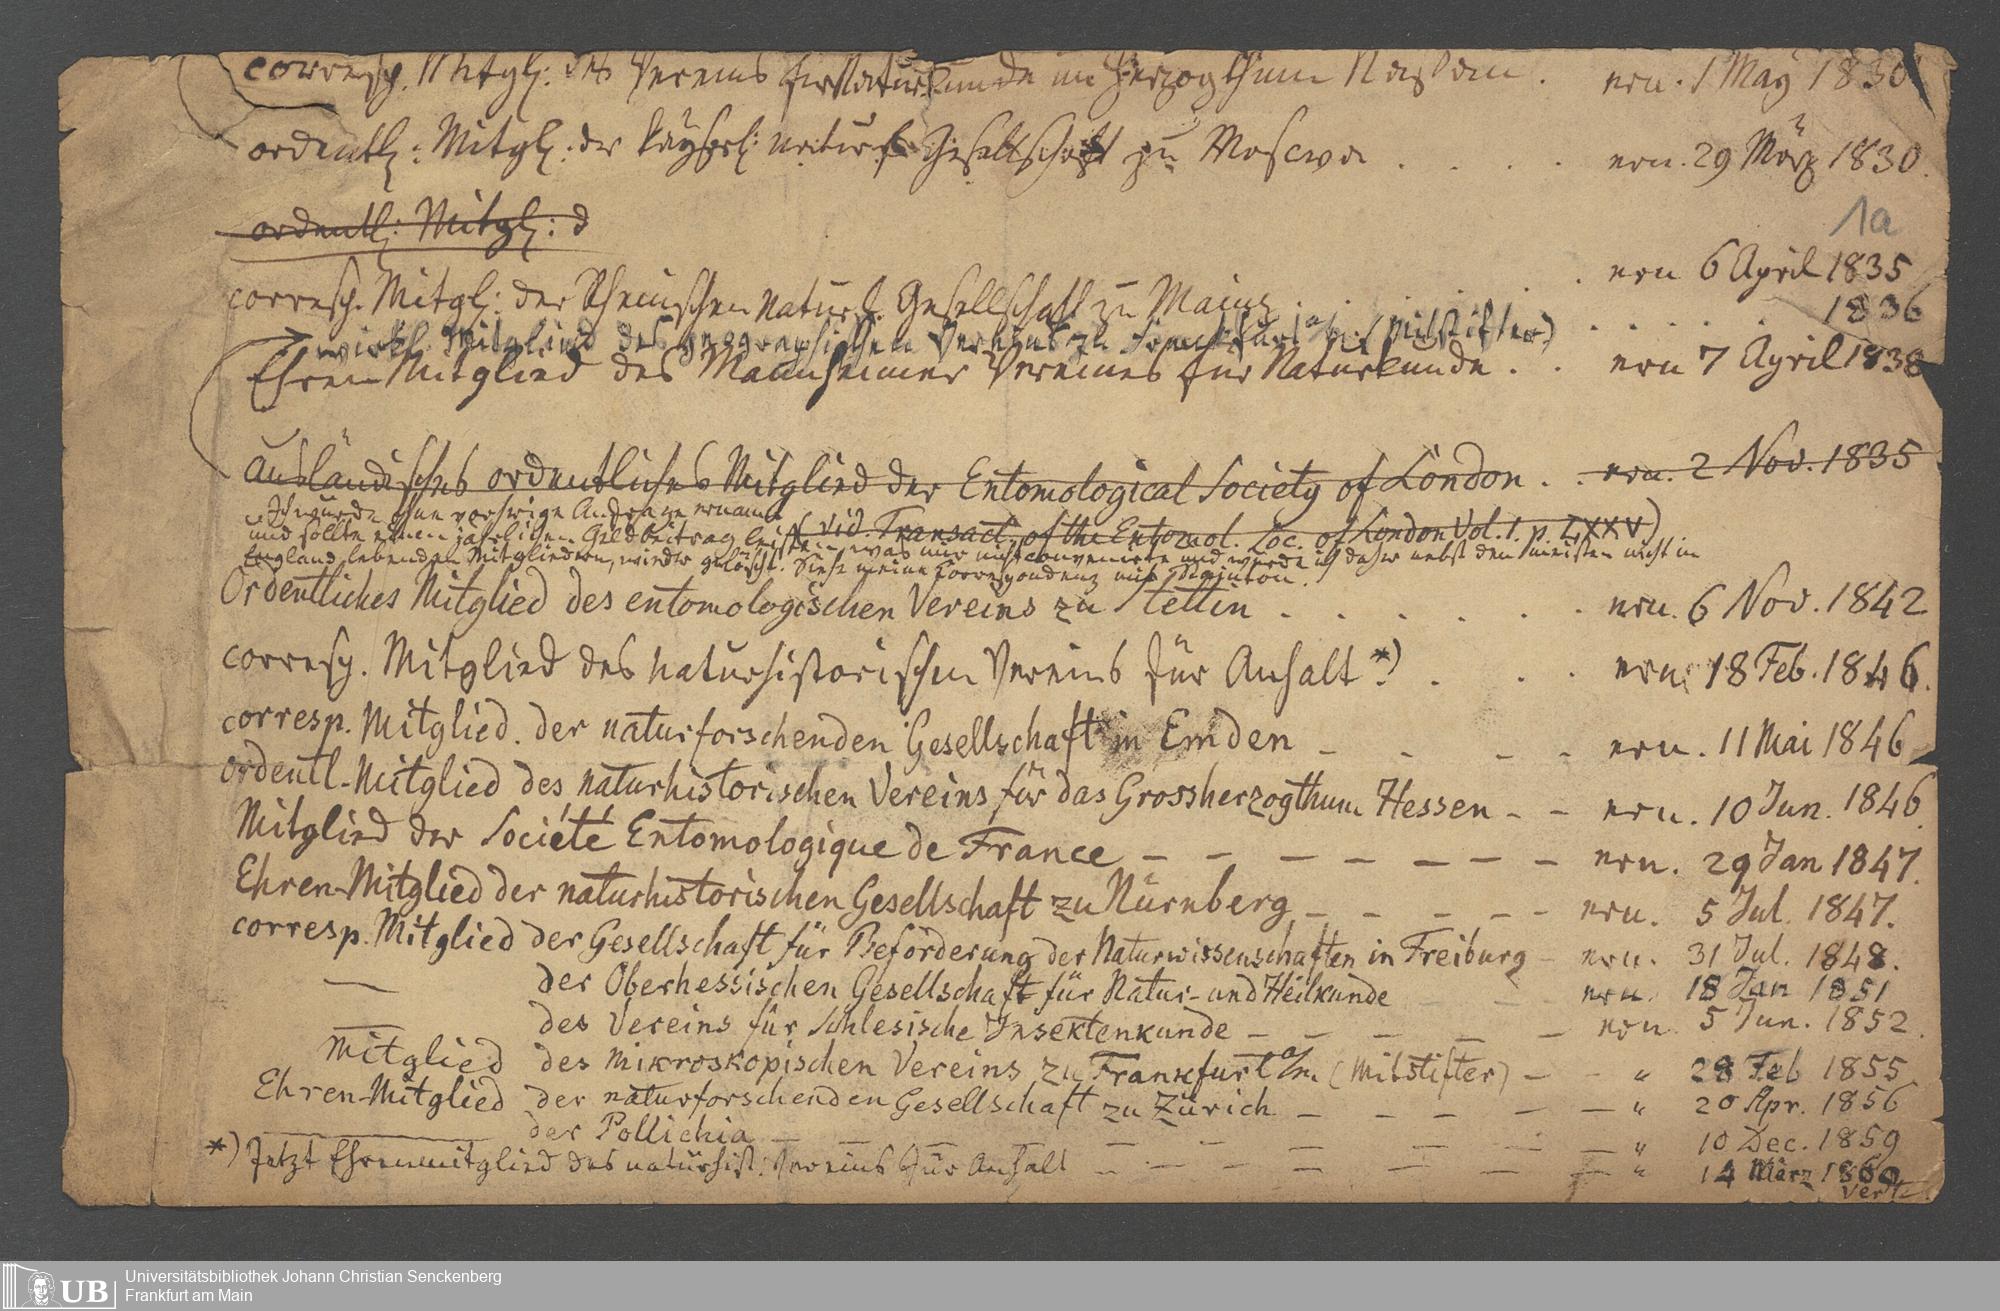 corresp. Mitgl: des Vereins für Naturkunde im Herzogthum Nassau . ern. 1 May 1830
ordentl: Mitgl: der Kayserl: naturf. Gesellschaft zu Moscwa . . . . ern. 29 März 1830.
ordentl: Mitgl: d
1a
corresp. Mitgl: der Rheinischen Naturf. Gesellschaft zu Mainz . . . . . ern 6 April 1835
wirkl. Mitglied des geographischen Vereins zu Frankfurt a/m (Mitstifter) . . . . . 1836
Ehren Mitglied des Mannheimer Vereines für Naturkunde . . ern 7 April 1838
Ausländisches ordentliches Mitglied der Entomological Society of London . . ern. 2 Nov. 1835
(vid. Transact. of the Entomol. Soc. of London Vol. 1. p. LXXV)
Ich wurde ohne vorherige Anfrage ernannt
und sollte einen jährlichen Geldbeitrag leisten, was mir nicht convenirte und wurde ich daher nebst den meisten nicht in
England lebenden Mitgliedern, wieder gelöscht. Siehe meine Correspondenz mit
Ordentliches Mitglied des entomologischen Vereins zu Stettin . . . . . . ern. 6 Nov. 1842
corresp. Mitglied des naturhistorischen Vereins für Anhalt *) . . . ern. 18 Feb. 1846.
corresp. Mitglied. der naturforschenden Gesellschaft in Emden - - - - ern. 11 Mai 1846
ordentl-Mitglied des naturhistorischen Vereins für das Grossherzogthum Hessen - - ern. 10 Jun. 1846.
Mitglied der Société Entomologique de France - - - - - - - ern. 29 Jan 1847.
Ehren-Mitglied der naturhistorischen Gesellschaft zu Nürnberg - - - - - ern. 5 Jul. 1847.
corresp. Mitglied der Gesellschaft für Beförderung der Naturwissenschaften in Freiburg - ern. 31 Jul. 1848.
— der Oberhessischen Gesellschaft für Natur- und Heilkunde - - - ern. 18 Jan 1851
— des Vereins für Schlesische Insektenkunde - - - - - ern. 5 Jun. 1852.
Mitglied des Mikroskopischen Vereins zu Frankfurt a/m (Mitstifter) - - " 28 Feb 1855
Ehren-Mitglied der naturforschenden Gesellschaft zu Zürich - - - - - " 20 Apr. 1856
— der Pollichia - - - - - - - " 10 Dec. 1859
*) Jetzt Ehrenmitglied des naturhist: Vereins für Anhalt - - - - - - " 14 März 1860
Vert.
UB Universitätsbibliothek Johann Christian Senckenberg
Frankfurt am Main